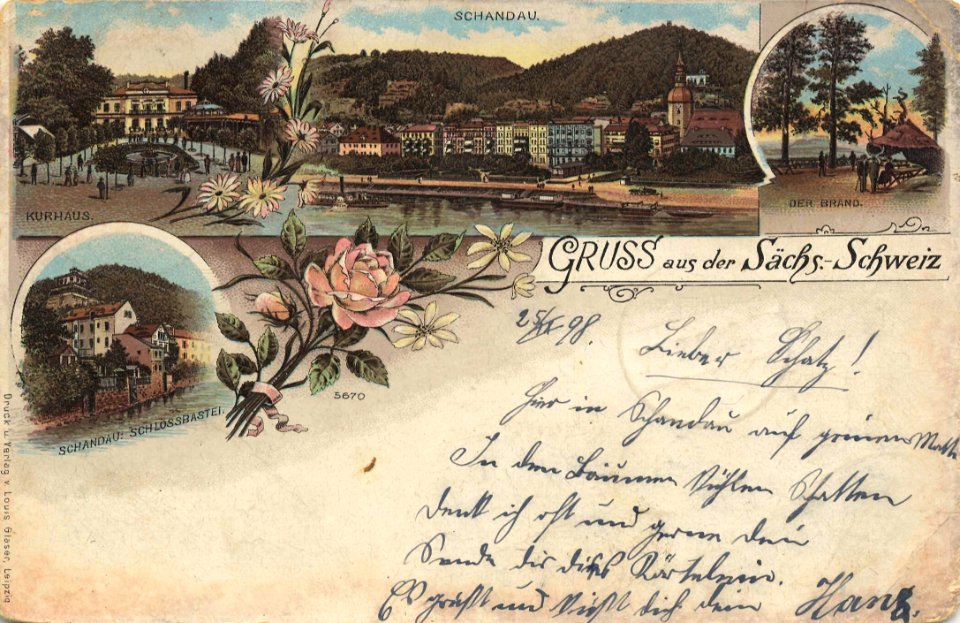 SCHANDAU.
KURHAUS.
DER BRAND.
GRUSS aus der Sächs.-Schweiz
SCHANDAU: SCHLOSSBASTEI.
5670
Druck u. Verlag v. Louis Glaser, Leipzig
98.
Lieber Schatz!
Hier in Schandau auf grünen Matten
In den Bäumen kühlen Schatten
Denk ich oft und gerne dein
Sende dir dies Kärtelein.
Es grüßt und küßt dich dein Hans.